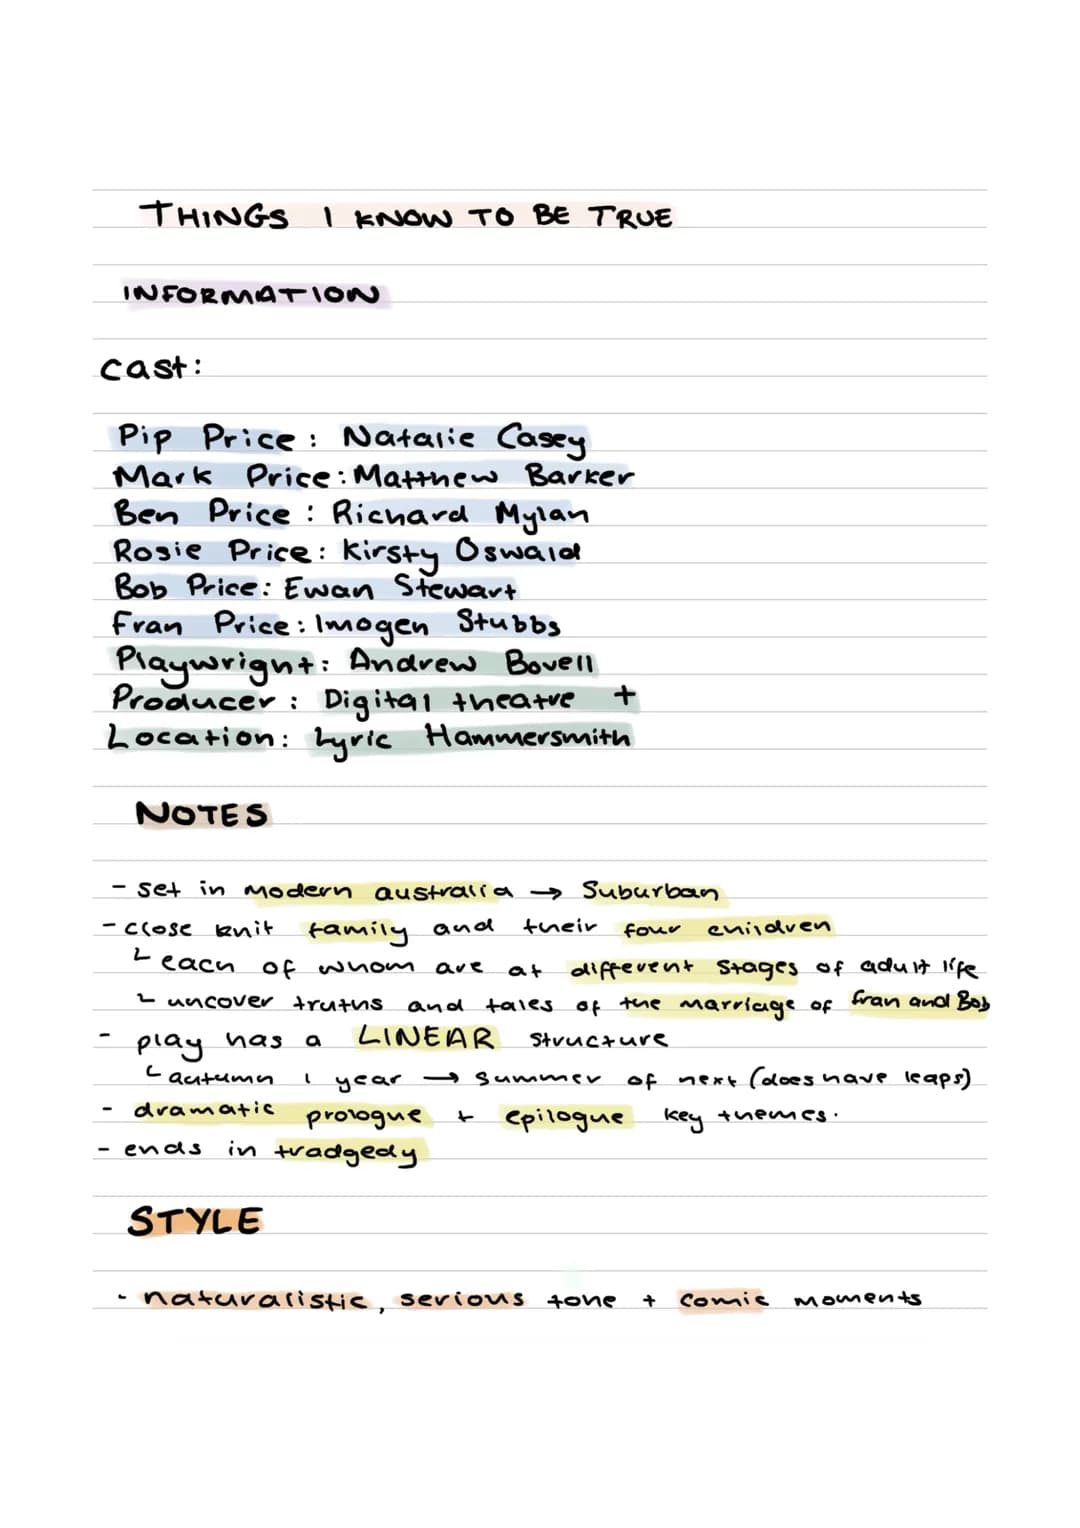 THINGS I KNOW TO BE TRUE
INFORMATION
cast:
Pip Price: Natalie Casey
Mark Price: Matthew Barker
Ben Price: Richard Mylan
Rosie Price: Kirsty Oswald
Bob Price: Ewan Stewart
Fran Price: Imogen Stubbs
Playwright: Andrew Bovell
Producer: Digital theatre +
Location: Lyric Hammersmith
NOTES
- set in modern australia → Suburban
- close knit family and their four children
└ each of whom are at different stages of adult life
└ uncover truths and tales of the marriage of fran and Bob
- play has a LINEAR structure
└ autumn 1 year → summer of next (does have leaps)
- dramatic prologue + epilogue key themes.
- ends in tradgedy
STYLE
- naturalistic, serious tone + comic moments